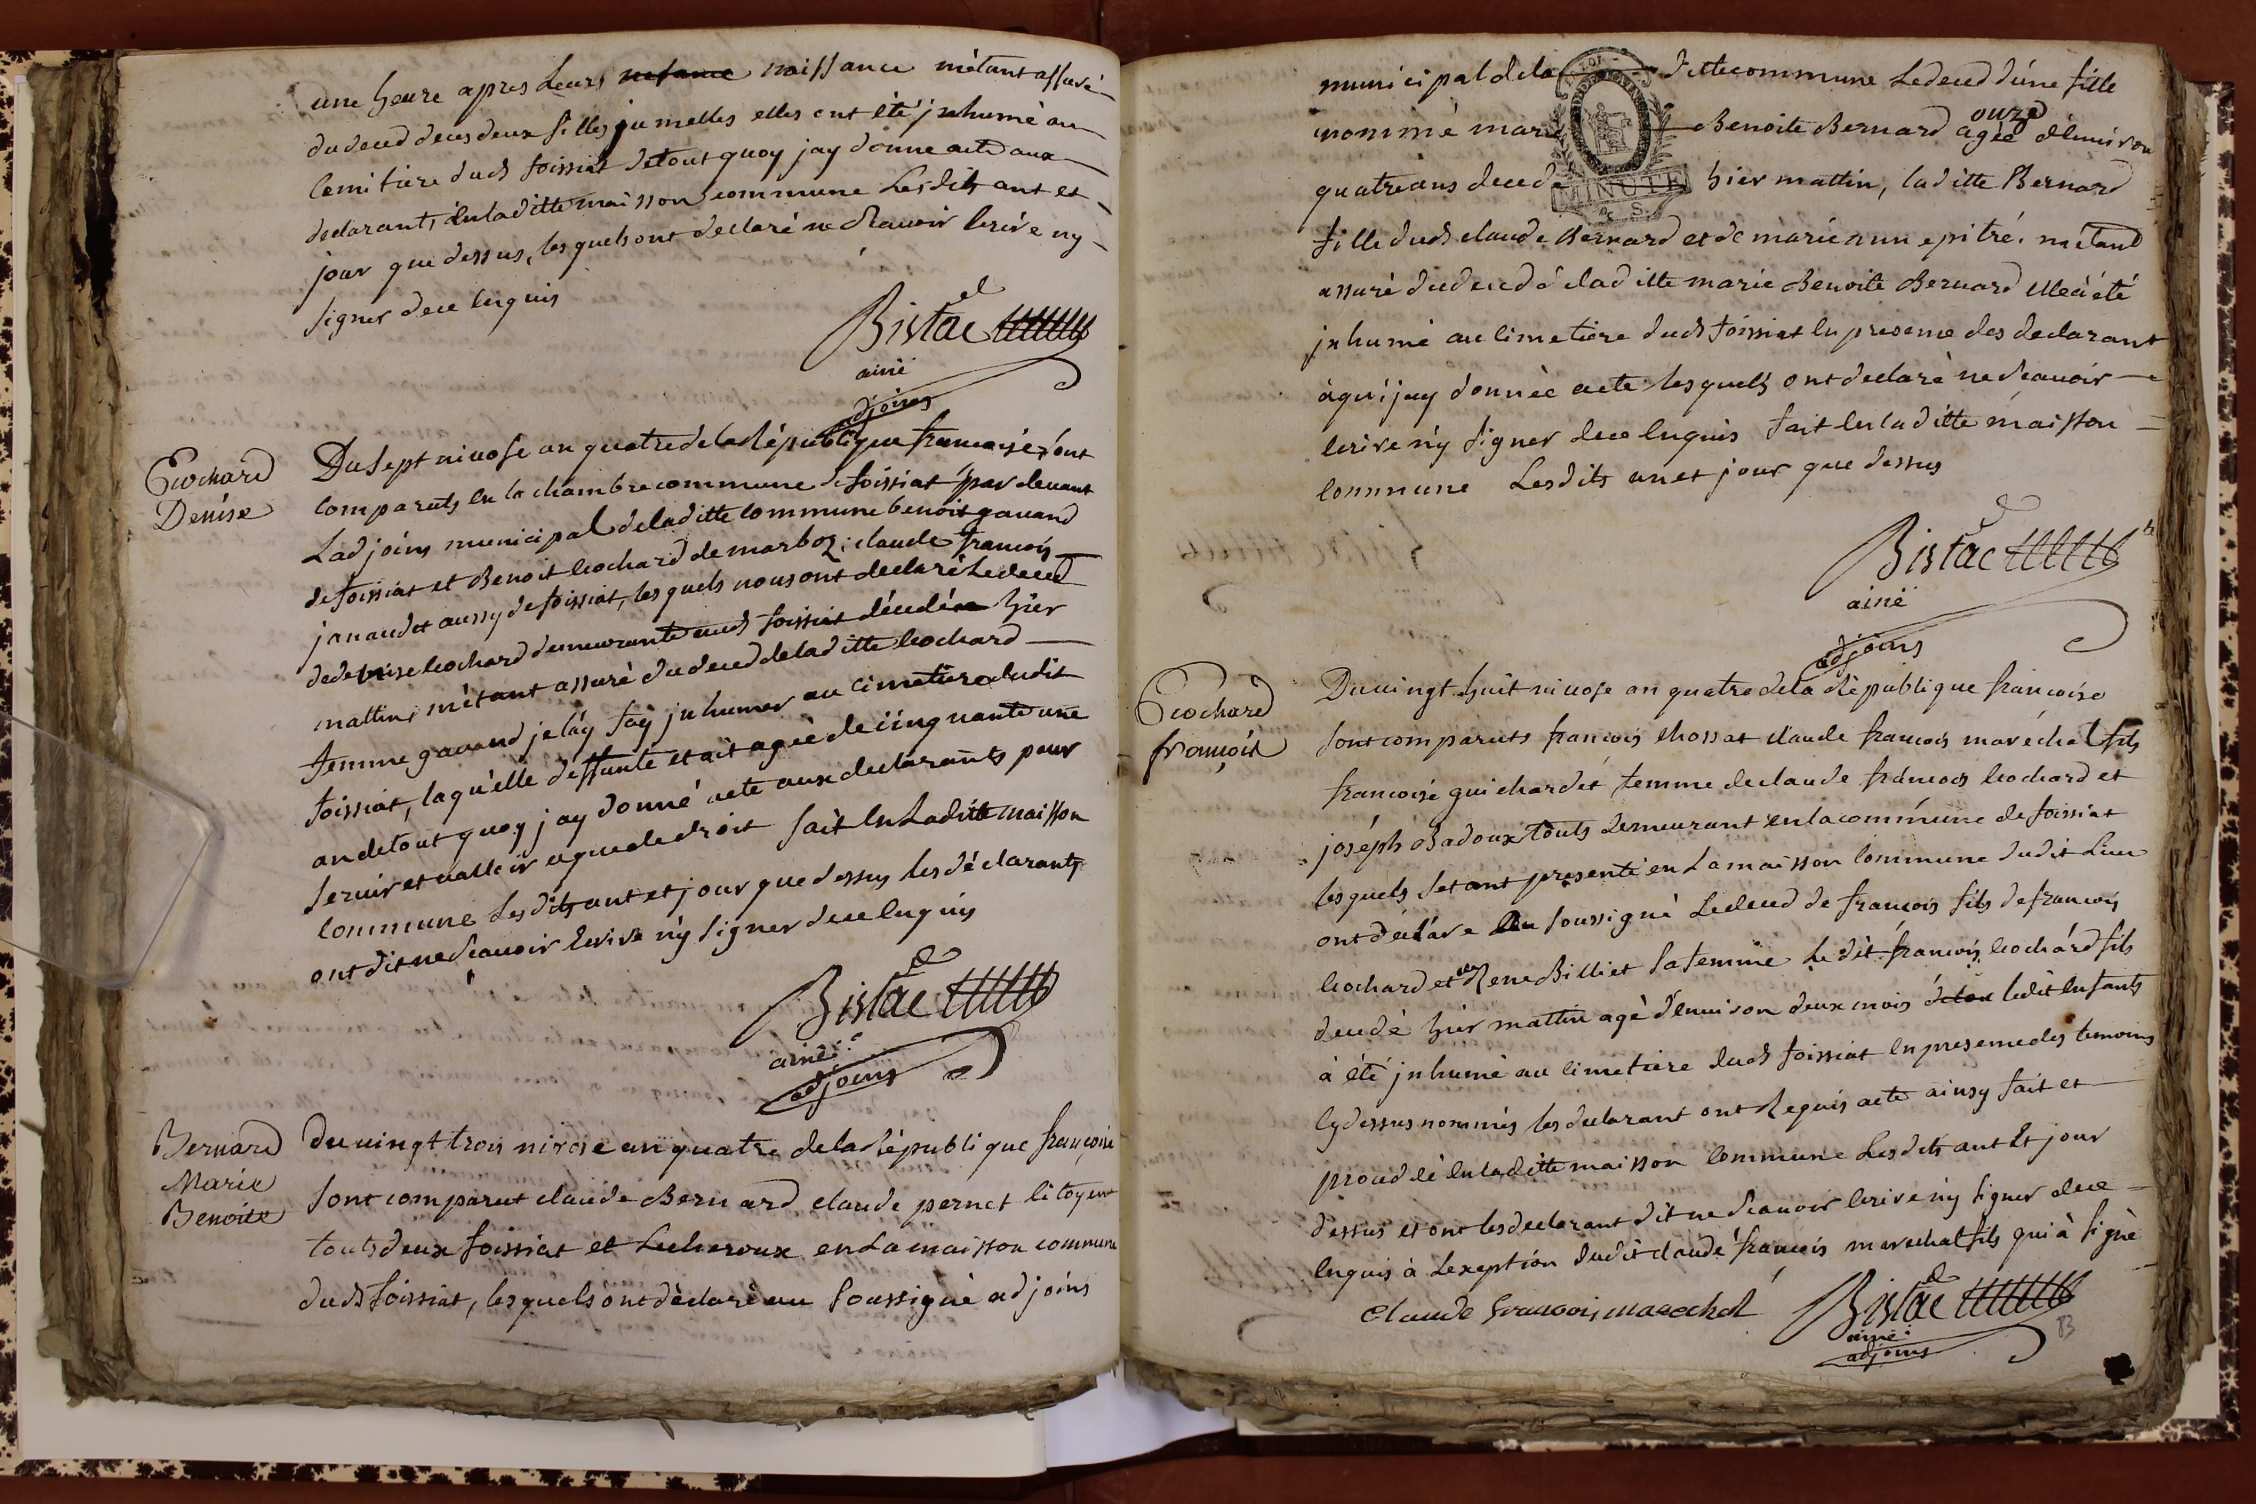 une heure apres leurs naissance m'étant assuré
du deced deces deux filles jumelles elles ont été jnhumé au
cemitiere dud foissiat detout quoy jay donne acte aux
declarants en laditte maisson commune Lesdits ant et
jour que dessus, lesquels ont declaré ne scauoir Ecrire ny
signer dece enquis
Bistac
ainé
adjoins
Cochard
Denise
Du sept niuose an quatre dela République francaise, sont
comparuts en la chambre commune de foissiat par deuant
Ladjoins municipal deladitte commune benoit gauand
de foissiat et Benoit cochard de marboz, claude francois
janaudet aussy de foissiat, lesquels nous ont declaré Le deced
de denise cochard demeurante aud foissiat décedée hier
mattin, m'étant assuré du deced deladitte cochard
femme gauand je lay fay jnhumer au cimetiere dudit
foissiat, laquelle deffunte etait agée de cinquante une
an detout quoy jay donné acte aux declarants pour
seruir et ualloir aque de droit fait en Laditte maisson
commune Lesdits ant et jour que dessus les déclarants
ont dit ne scauoir Ecrire ny signer dece enquis
Bistac
ainé
adjoins
Bernard
Marie
Benoite
du uingt trois nivose an quatre dela République françoise
sont comparut claude Bernard claude pernet citoyent
touts deux foissiat et Lecheroux en La maisson commune
dud foissiat, lesquels ont déclaré au soussigné adjoins
municipal dela ditte commune Le deced d'une fille
nommé marie Benoite Bernard agée d'enuiron
onze
quatre ans deced hier mattin, laditte Bernard
fille dud claude Bernard et de marie anne pitré. m'étant
assuré du deced é laditte marie Benoite Bernard elle à été
jnhumé au cimetiere dud foissiat en presence des declarant
àqui jay donnée acte lesquels ont declaré ne scauoir
ecrire ny signer dece enquis fait en laditte maisson
commune Lesdits an et jour que dessus
Bistac
ainé
adjoins
Cochard
françois
Du uingt huit niuose an quatre dela République françoise
sont comparuts francois chossat claude francois maréchal fils
francoise guichardet femme de claude francois cochard et
joséph Badoux touts demeurant en la commune de foissiat
lesquels s'etant presenté en La maisson commune dudit Lieu
ont déclare au soussigné Le deced de francois fils de francois
cochard et Rene Billiet sa femme Le dit francois cochard fils
decedé hier mattin agé d'enuiron deux mois ledit enfants
à été jnhumé au cimetiere dud foissiat en presence des temoins
cy dessus nommés les declarant ont Requis acte ainsy fait et
procedé en laditte maisson commune Lesdits ant et jour
dessus et ont les declarant dit ne scauoir ecrire ny signer dece
enquis à Lexeption dudit claude francois marechal fils qui à signé
Claude francois marechal
Bistac
ainé
adjoins
MINUTE